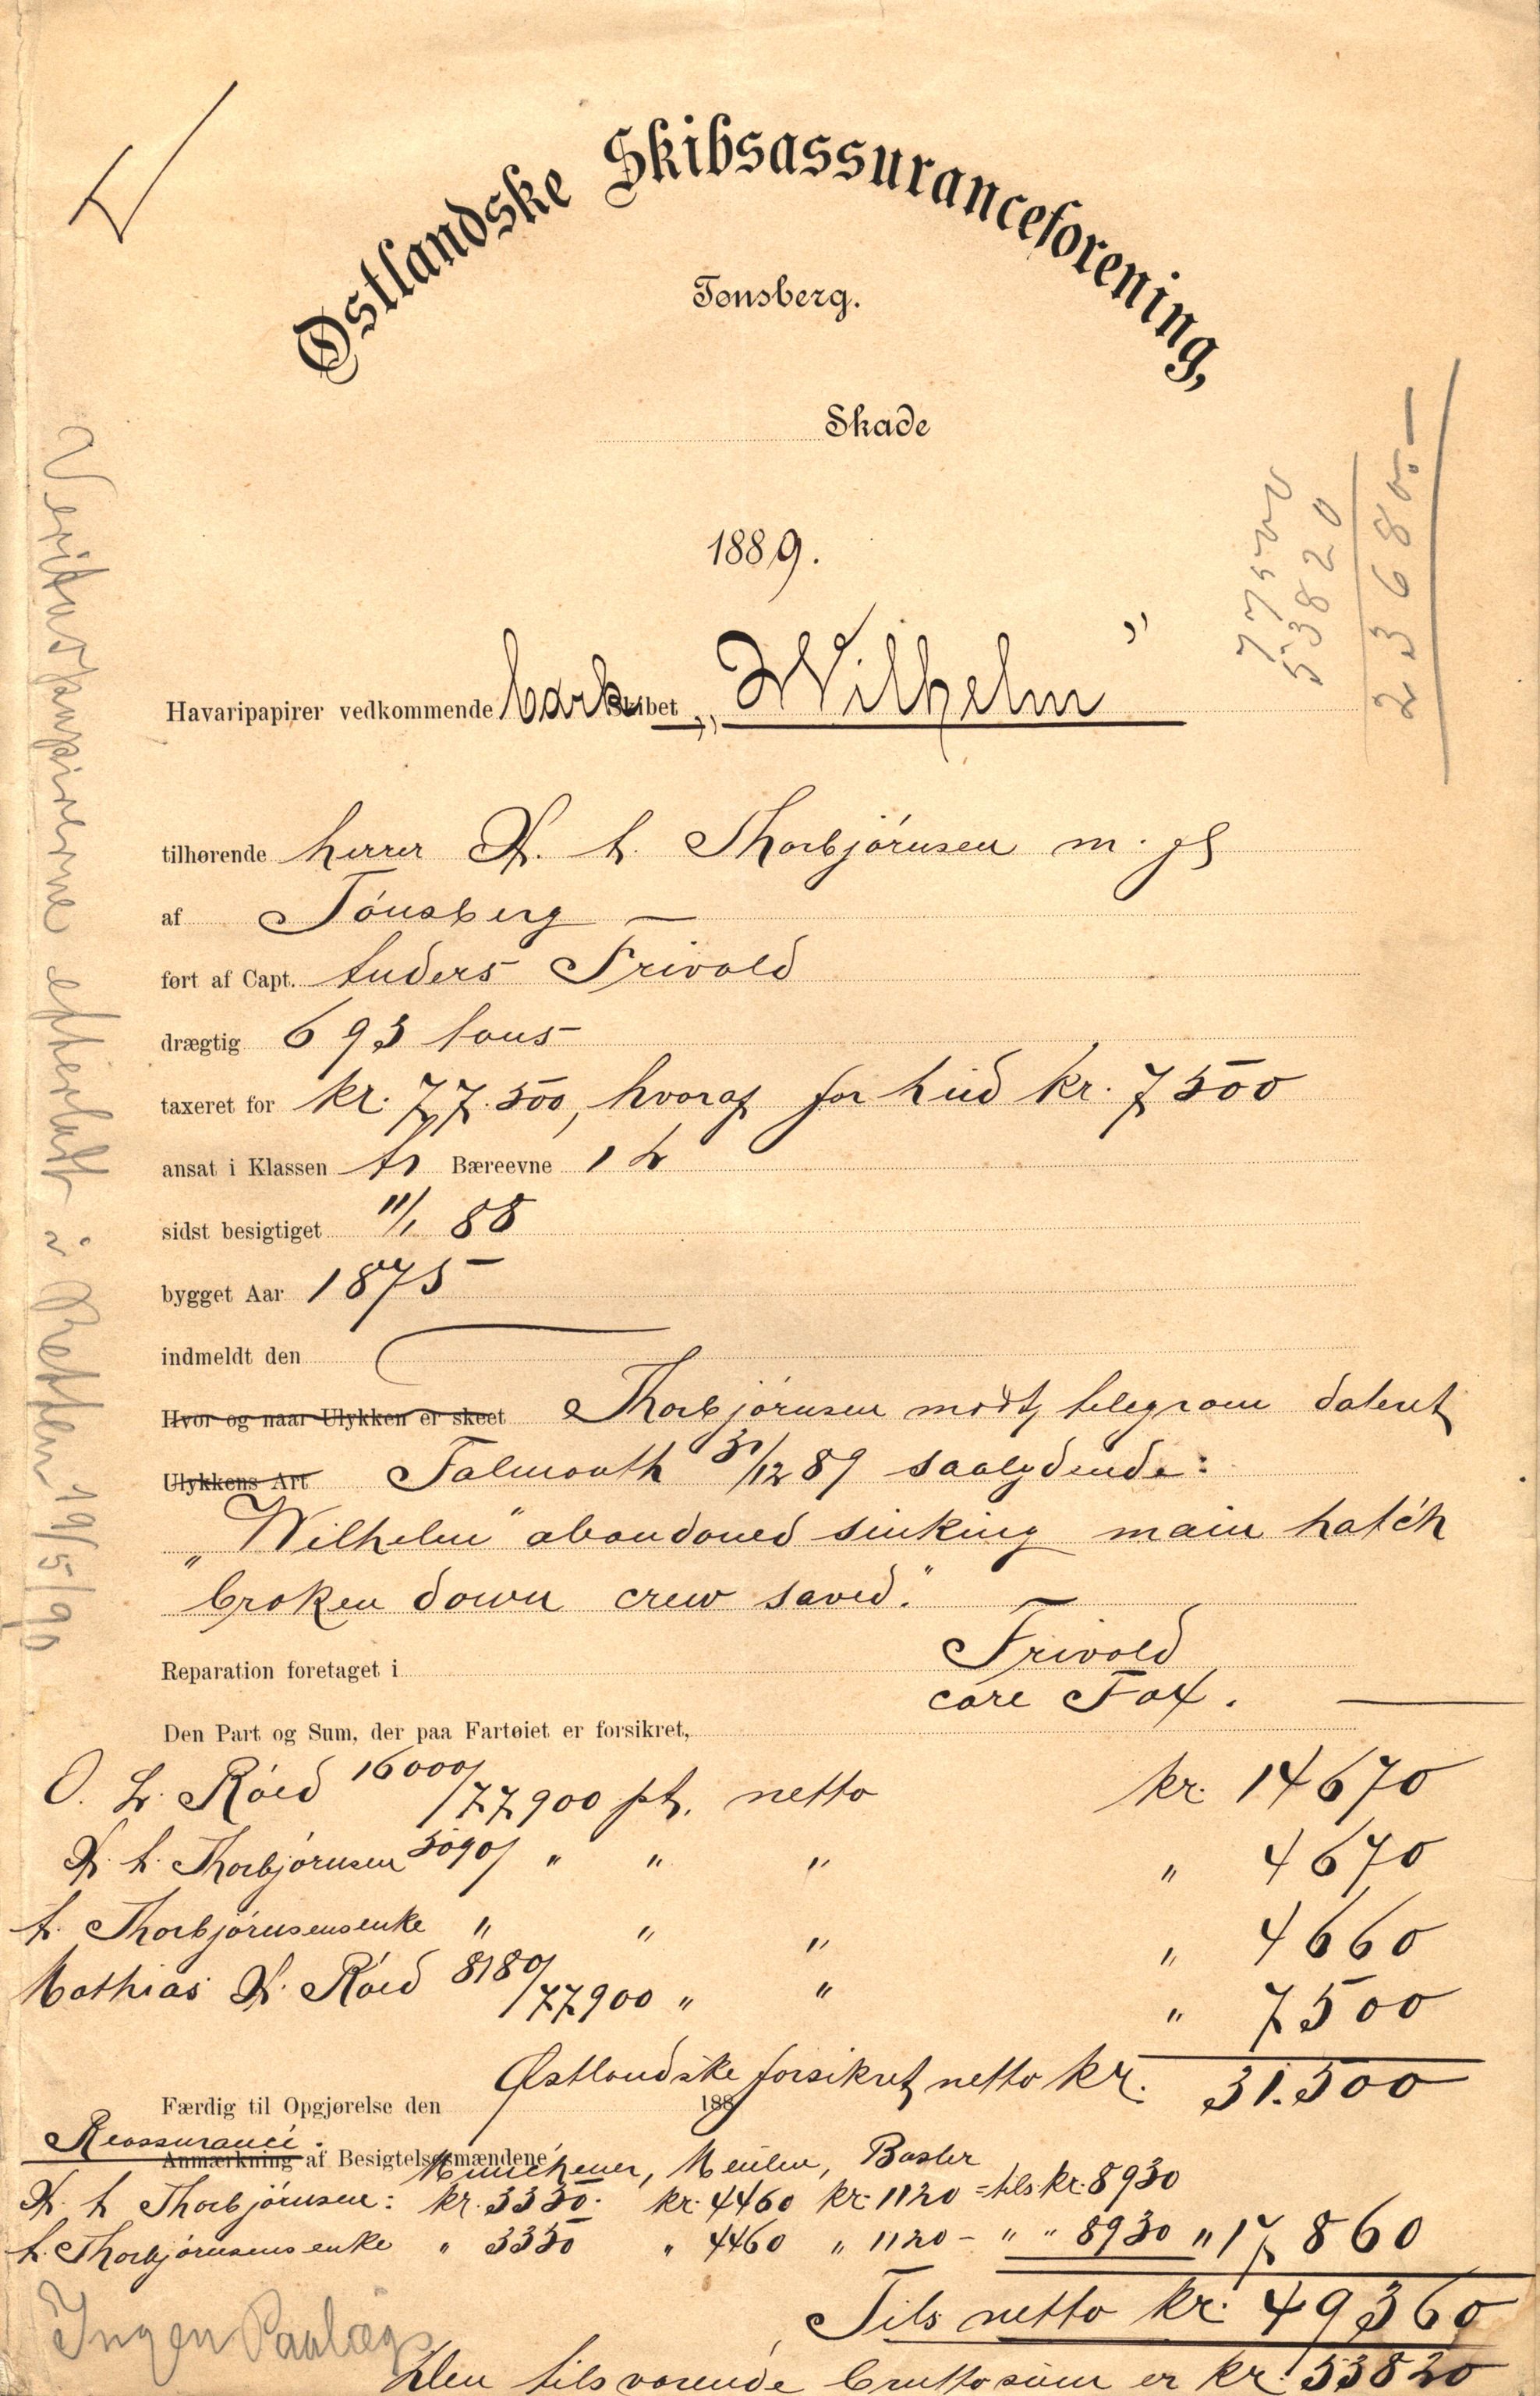 Østlandske Skibsassuranceforening,
Tønsberg.
Skade
1889.
77500
53820
23680.—
Havaripapirer vedkommende bark Skibet „Wilhelm"
tilhørende herrer H. A. Thorbjørnsen m. fl
af Tönsberg —
ført af Capt. Anders Trivold
drægtig 693 tons
taxeret for kr. 77.500, hvoraf for hud kr. 7500
ansat i Klassen A1 Bæreevne 1 L
sidst besigtiget 11/1 88
bygget Aar 1875
indmeldt den
Hvor og naar Ulykken er skeet Thorbjörnsen modt, telegram dateret
Ulykkens Art Falmouth 31/12 89 saalydende:
„Wilhelm" abandoned sinking main hatch
broken down crew saved."
Trivold
Reparation foretaget i
care Fox.
Den Part og Sum, der paa Fartøiet er forsikret,
O. L. Röed 16000/77900 pt. netto kr. 14670
H. A. Thorbjörnsen 5090/ " " " " 4670
A. Thorbjörnsens enke " " " " 4660
Mathias H. Röed 8180/77900 " " " 7500
Østlandske forsikret netto kr. 31.500
Færdig til Opgjørelse den 188
Reassurance.
Anmærkning af Besigtelsesmændene
Münchener, Basler
H. A. Thorbjörnsen: kr. 3350. kr. 4460 kr. 1120 = tils kr. 8930
A. Thorbjörnsens enke " 3350 " 4460 " 1120 – " " 8930 " 17860
Tils netto kr. 49360
Den tilsvarende bruttosum er kr. 53820
Ingen Paalæg
Veritaspapirerne efterladt i Retten 19/5/90